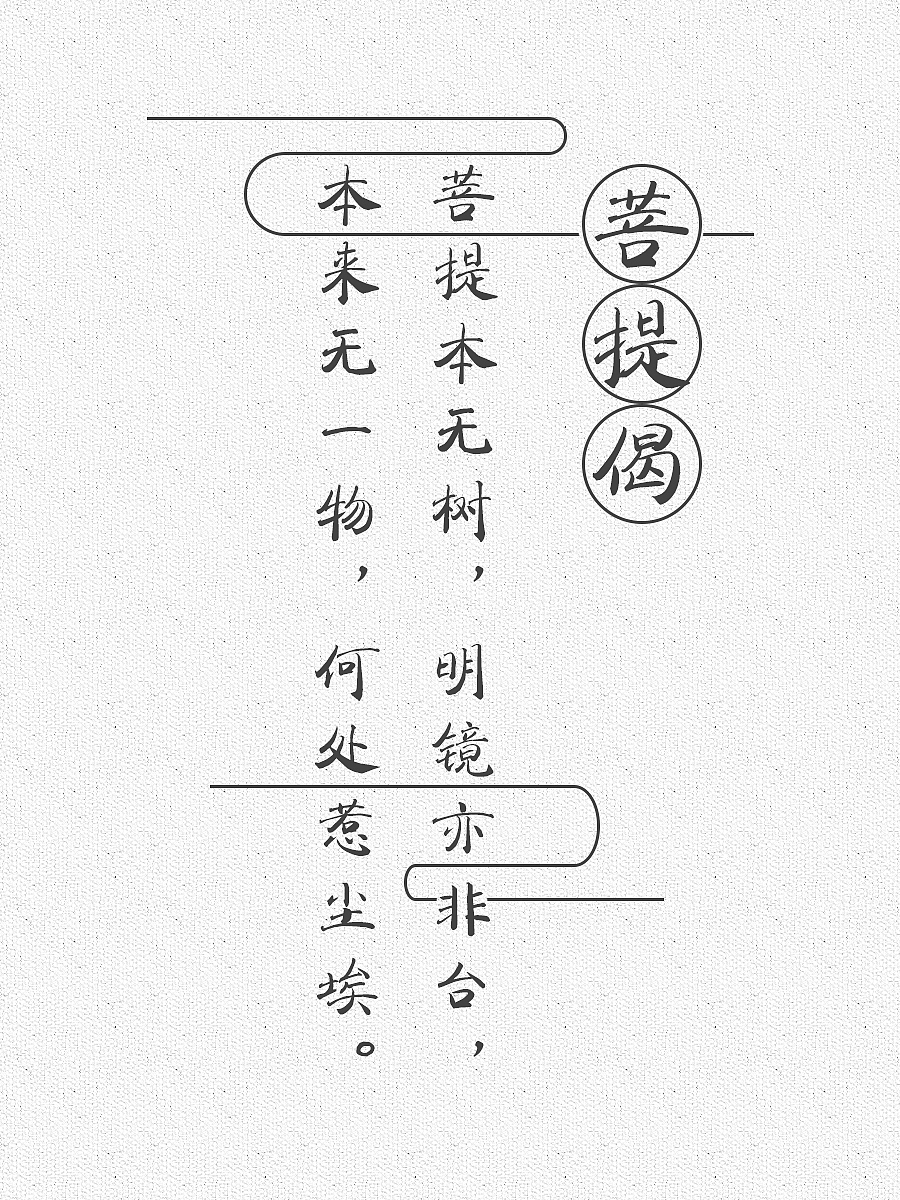 菩提偈
菩提本无树，明镜亦非台，
本来无一物，何处惹尘埃。